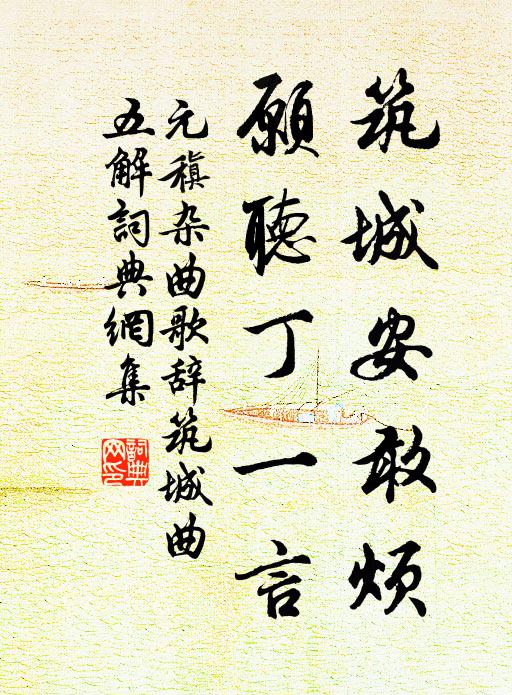 筑城安敢烦
願聴丁一言
元稹杂曲歌辞筑城曲
五解詞典網集
詞典网印